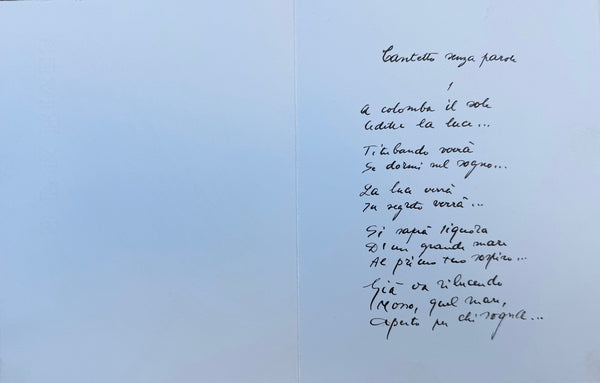 Cantetto senza parole
1
A colomba il sole
Cedette la luce...
Tubando verrà
Se dormi nel sogno...
La luce verrà
In segreto vivrà...
Si saprà signora
D'un grande mare
Al primo tuo sospiro...
Già va rilucendo
Mosso, quel mare,
Aperto per chi sogna...